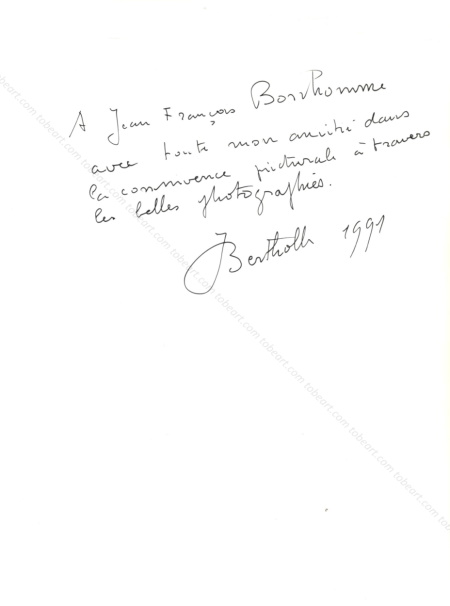 A Jean François Bonhomme
avec toute mon amitié dans
la connivence picturale à travers
les belles photographies.
Bertholle 1991
tobeart.com tobeart.com tobeart.com tobeart.com tobeart.com tobeart.com tobeart.com tobeart.com